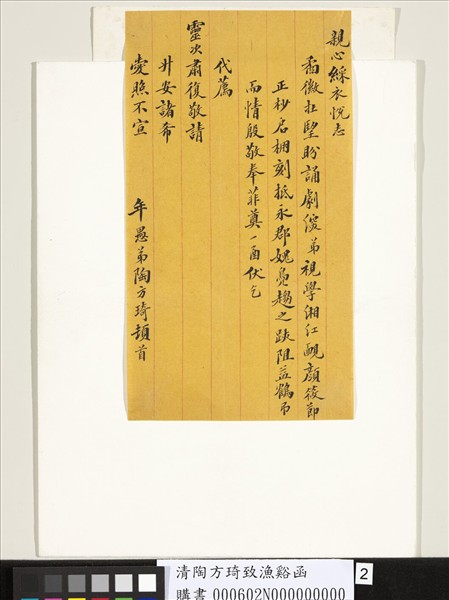 親心綵衣悅志
矞徽在望盼誦劇深弟視學湘江靦顏篋節
正杪启棡刻抵永郡媿鳧趨之跌阻益鶴弔
而情殷敬奉菲奠一函伏乞
代薦
靈次肅復敬請
升安諸希
愛照不宣
年愚弟陶方琦頓首
清陶方琦致漁谿函
購書 000602N000000000
2